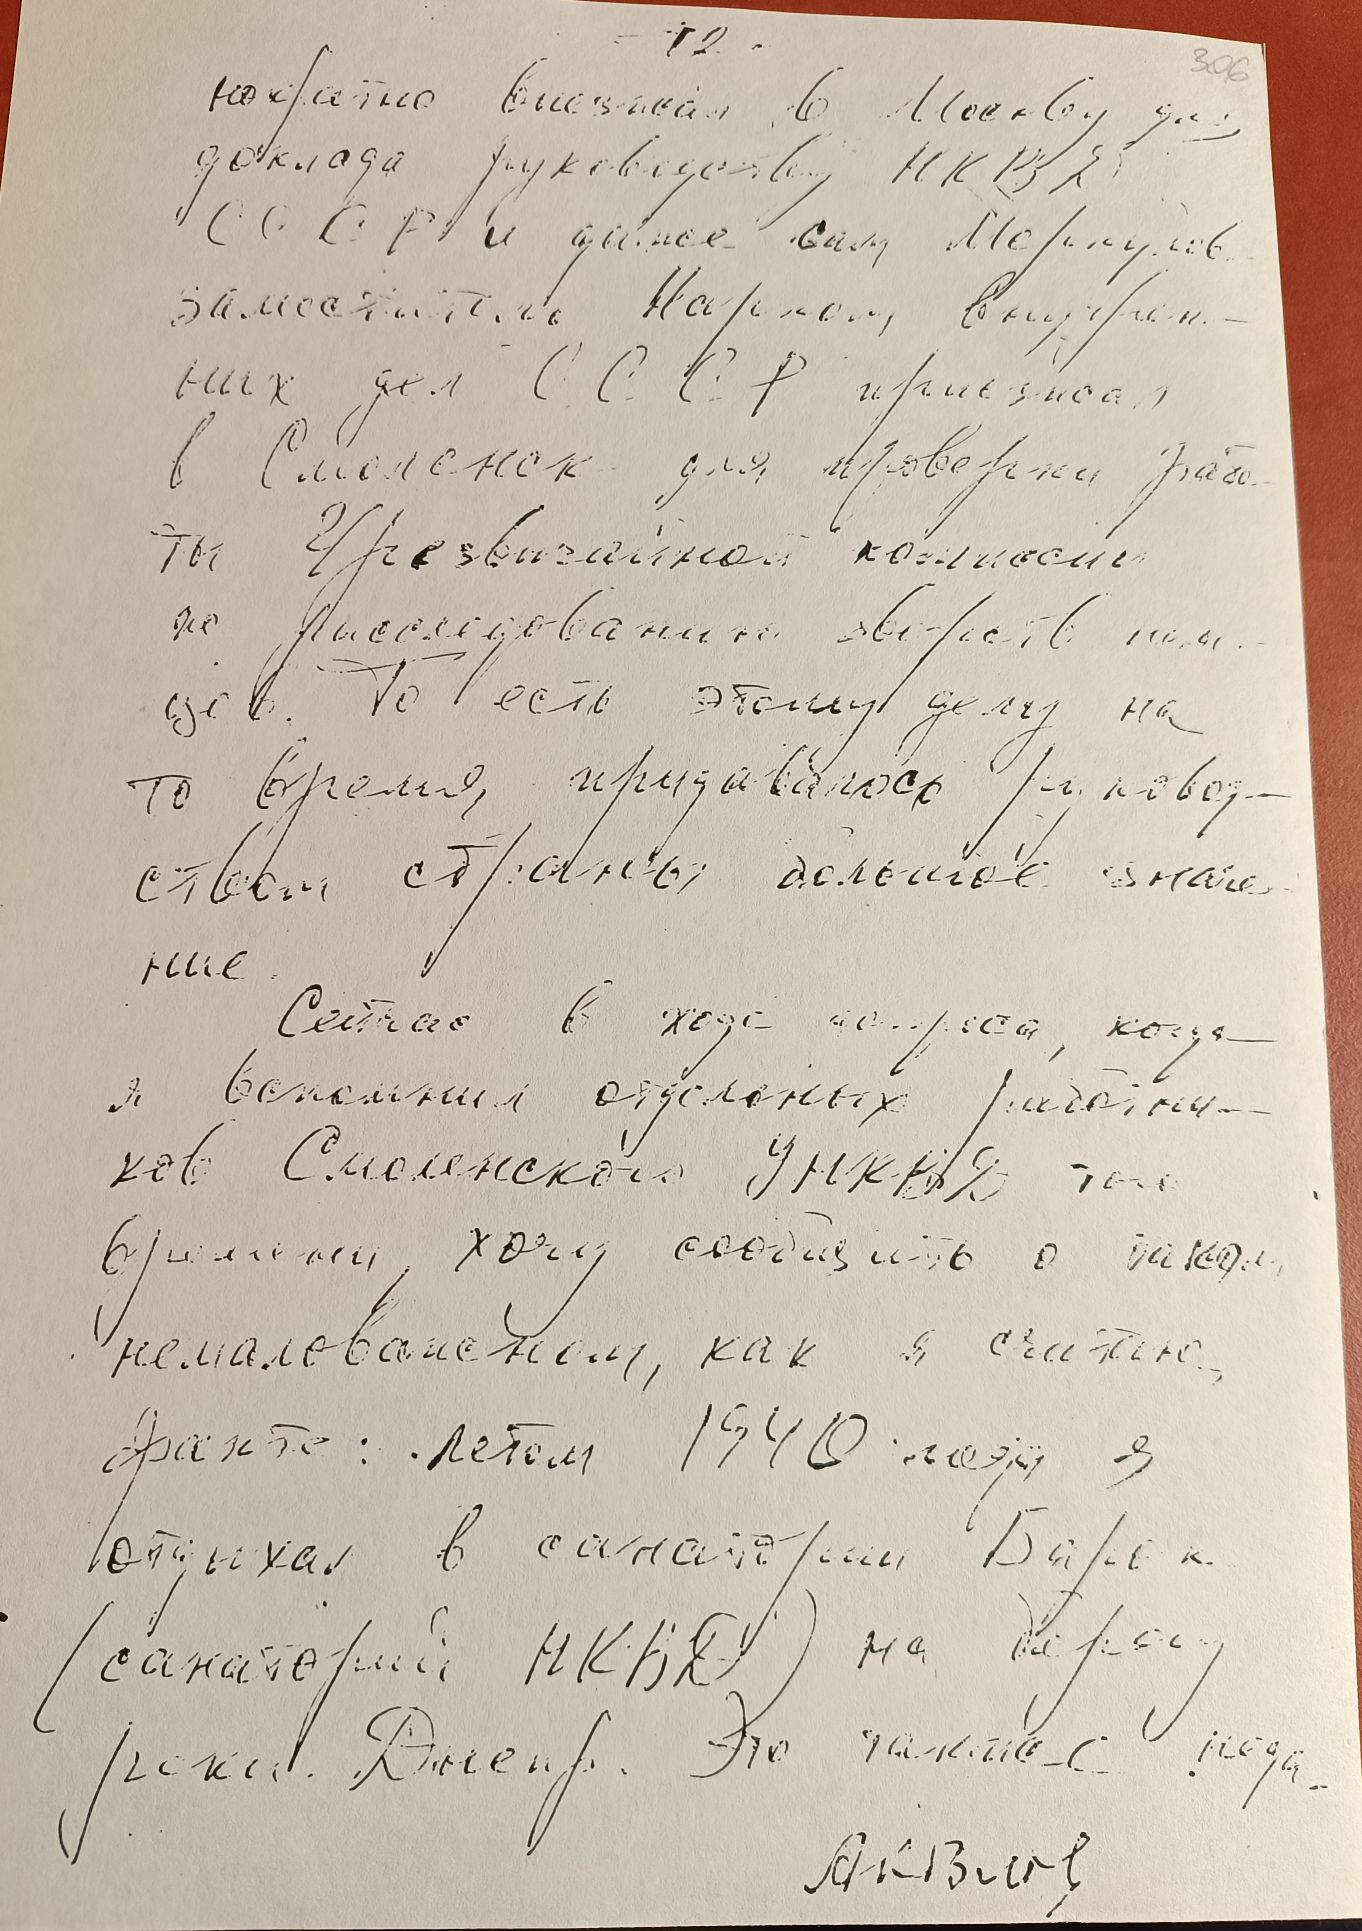 - 12 -
306
нократно выезжал в Москву для
доклада руководству НКВД
СССР и даже сам Меркулов
заместитель Нарком внутрен-
них дел СССР приезжал
в Смоленск для проверки рабо-
ты Чрезвычайной комиссии
по расследованию зверств нем-
цев. То есть этому делу на
то время придавалось руковод-
ством страны большое значе-
ние.
Сейчас в ходе допроса, когда
я вспомнил отдельных работни-
ков Смоленского УНКВД того
времени, хочу сообщить о таком
немаловажном, как я считаю,
факте: летом 1940 года я
отдыхал в санатории Борок
(санаторий НКВД) на берегу
реки Днепр. Это также неда-